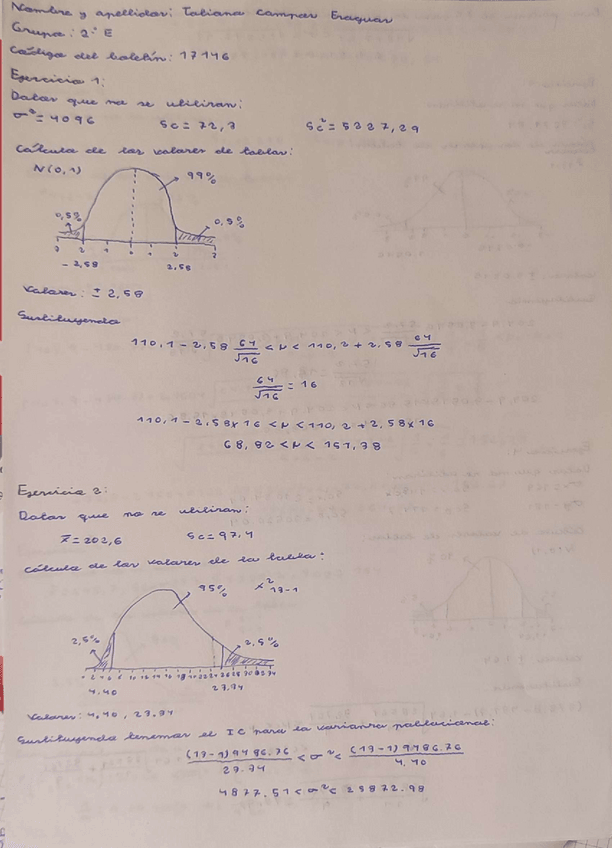 Nombre y apellidos: Tatiana Campos
Grupo: 2º E
Código del boletín: 17146
Ejercicio 1:
Datos que no se utilizan:
σ²=4096 Sc=72,7 Sc²=5327,29
Cálculo de los valores de tablas:
N(0,1)
99%
0,5% 0,5%
3 2 1 0 1 2 3
-2,58 2,58
Valores: ± 2,58
Sustituyendo
110,1-2,58 64/√16 < μ < 110,2+2,58 64/√16
64/√16 = 16
110,1-2,58x16 < μ < 110,2+2,58x16
68,82 < μ < 151,38
Ejercicio 2:
Datos que no se utilizan:
x̄=202,6 Sc=97,4
Cálculo de los valores de la tabla:
95% x²13-1
2,5% 2,5%
4.40 23.34
Valores: 4,40, 23.34
Sustituyendo tenemos el IC para la varianza poblacional:
(13-1)9486.76/23.34 < σ² < (13-1)9486.76/4.40
4877.51 < σ² < 25872.98